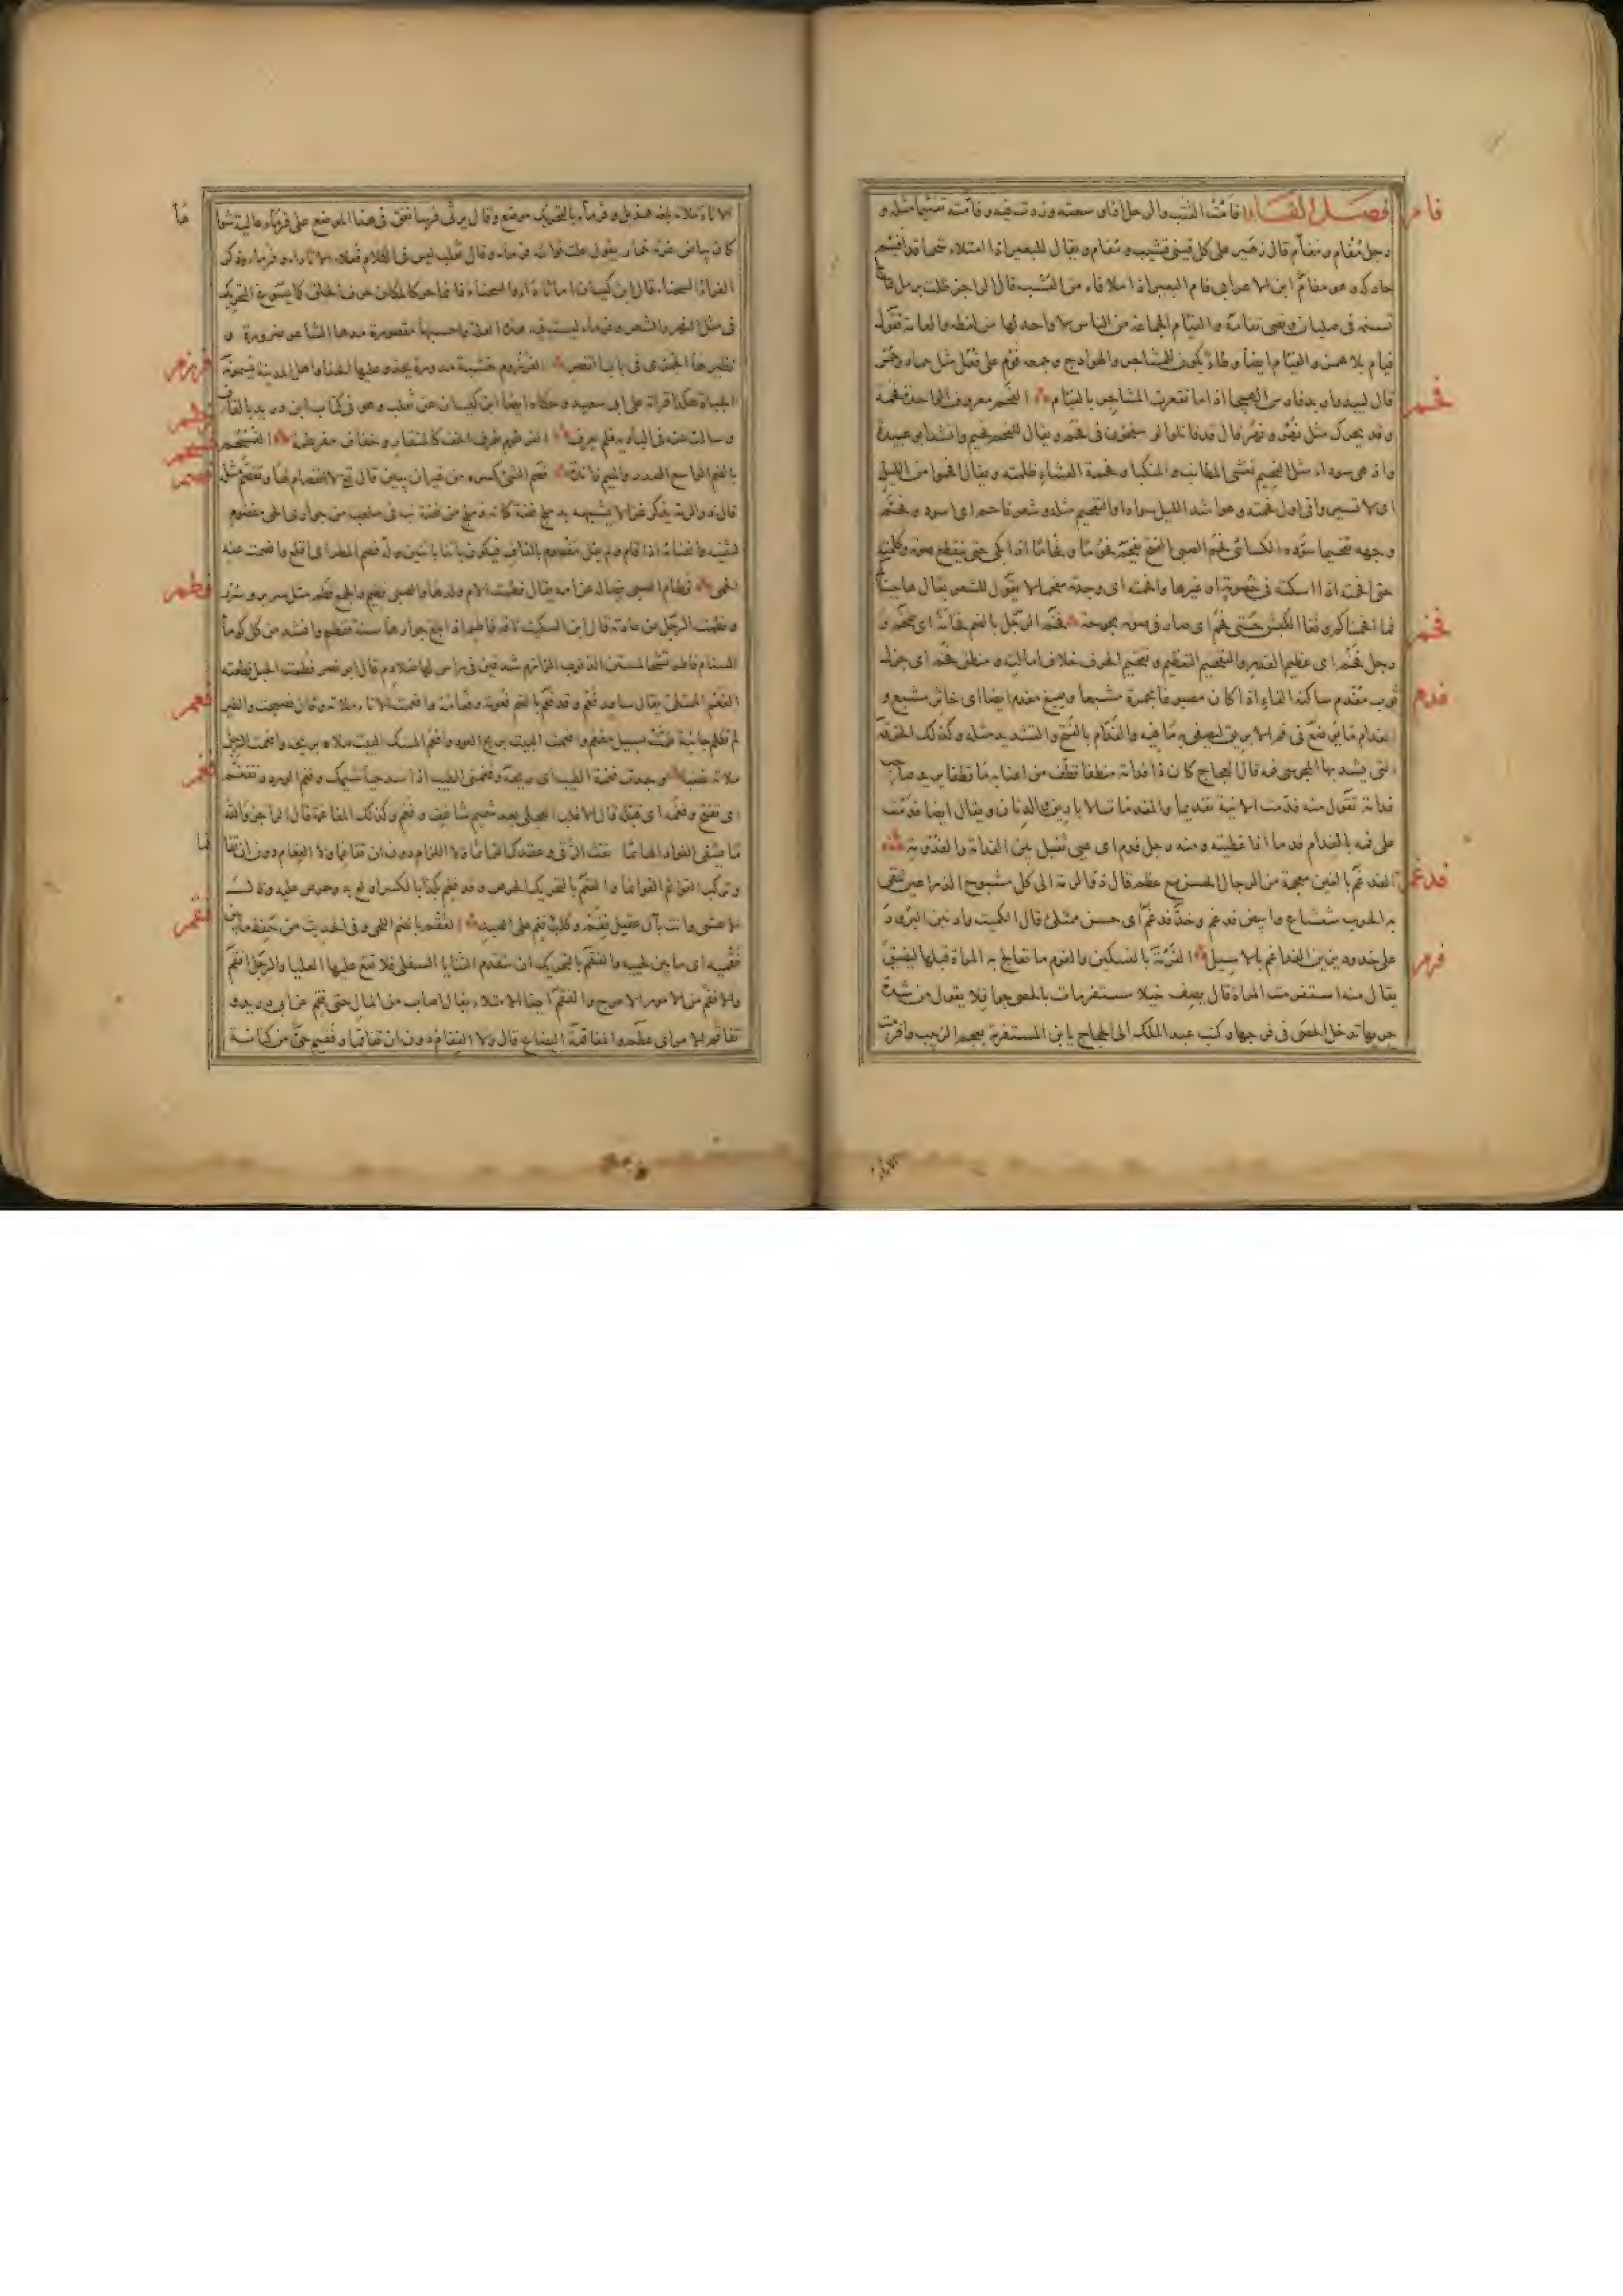 فأم
فصل الفاء افأمت القتب والرحل اذا وسعته وزدت فيه وفأمته تفئيما مثله و
رجل مفأم ومفأم قال زهير على كل قيني قشيب ومفأم ويقال للبعير اذا امتلاء شحما قد افئم
حاركه وهو مفأم ابن الاعرابي فأم البعير اذا ملا فاه من العشب قال الراجز ظلت برمل عالج
تسنمه في صليان ونصي تفأمه والفئام الجماعة من الناس لا واحد لها من لفظه والعامة تقول
فيام بلا همز والفئام ايضا وطاء يكون للمشاجر والهوادج وجمعه فؤم على فعل مثل خمار وخمر
فحم
قال لبيد واربد فارس الهيجا اذا ما تقعرت المشاجر بالفئام الفحم معروف الواحدة فحمة
وقد يحرك مثل نهر ونهر قال قد قاتلوا لو ينفخون في فحم ويقال للفحم فحيم وانشد ابو عبيدة
واذ هي سوداء مثل الفحيم تغشى المطانب والمنكبا وفحمة العشاء ظلمته ويقال افحموا من الليل
اي لا تسيروا في اول فحمته وهو اشد الليل سوادا والتفحيم مثله وشعر فاحم اي اسود وفحم
وجهه تفحيما سوده الكسائي فحم الصبي بالفتح يفحم فحوما وفحاما اذا بكى حتى ينقطع صوته وكلمته
حتى افحمته اذا اسكته في خصومة او غيرها وافحمته اي وجدته مفحما لا يقول الشعر يقال هاجيناكم
فخم
فما افحمناكم وثغا الكبش حتى فحم اي صار في صوته بحوحة فخم الرجل بالضم فخامة اي ضخم و
رجل فخم اي عظيم القدر والتفخيم التعظيم وتفخيم الحرف خلاف امالته ومنطق فخم اي جزل
فدم
ثوب مفدم ساكنة الفاء اذا كان مصبوغا بحمرة مشبعا وصبغ مفدم ايضا اي خاثر مشبع و
الفدام ما يوضع في فم الابريق ليصفى به ما فيه والفدام بالفتح والتشديد مثله وكذلك الخرقة
التي يشد بها المجوسي فمه قال العجاج كان ذا فدامة منطفا قطف من اعنابه ما قطفا يريد صاحب
فدامة تقول منه فدمت الانية تفديما والمفدمات الاباريق والدنان ويقال ايضا فدمت
على فيه بالفدام فدما اذا غطيته ومنه رجل فدم اي عيي ثقيل بين الفدامة والفدومة
فدغم
الفدغم بالغين معجمة من الرجال الحسن مع عظم قال ذو الرمة الى كل مشبوح الذراعين تتقى
به الحرب شعشاع وابيض فدغم وخد فدغم اي حسن ممتلئ قال الكميت وادنين البرود
فرم
على خدود يزين الفداغم بالاسيل الفرمة بالتسكين والفرم ما تعالج به المراة قبلها ليضيق
يقال منه استفرمت المراة قال يصف خيلا مستفرمات بالحصى جوافلا يقول من شدة
جريها تدخل الحصى في فرجها وكتب عبد الملك الى الحجاج يا ابن المستفرمة بعجم الزبيب وافرمت
الاناء
الاناء ملاته بلغة هذيل وفرماء بالتحريك موضع وقال يرثي فرسا نفق في هذا الموضع على فرماء عالية شواه
كان بياض غرته خمار يقول علت قوائمه فرماء وقال ثعلب ليس في الكلام فعلاء الا ثاداء وفرماء وذكر
الفراء السحناء قال ابن كيسان اما ثاداء والسحناء فانما حركا لمكان حرف الحلق كما يسوغ التحريك
في مثل النهر والشعر وفرماء ليست فيه هذه العلة واحسبها مقصورة مدها الشاعر ضرورة و
فرزم
نظيرها الجمزى في باب القصر الفرزوم خشبة مدورة يحذو عليها الحذاء واهل المدينة يسمونه
الجباة هكذا قراته على ابي سعيد وحكاه ايضا ابن كيسان عن ثعلب وهو في كتاب ابن دريد بالقاف
فرطم
وسالت عنه في البادية فلم يعرف الفرطوم طرف الخف كالمنقار وخفاف مفرطمة الفسحم
فسحم
فصم
بالضم الواسع الصدر والميم زائدة فصم الشئ كسره من غير ان يبين قال تع لا انفصام لها وتفصم مثله
قال ذو الرمة يذكر غزالا يشبهه بدملج فضة كانه دملج من فضة نبه في ملعب من جواري الحي مفصوم
لتثنيه وانحنائه اذا نام ولم يقل مقصوم بالقاف فيكون بائنا باثنين وافصم المطر اي اقلع وافصمت عنه
فطم
الحمى فطام الصبي فصاله عن امه يقال فطمت الام ولدها والصبي فطيم والجمع فطم مثل سرير وسرر
وفطمت الرجل عن عادته قال ابن السكيت ناقة فاطم اذا بلغ حوارها سنة فقطم وانشد من كل كوماء
السنام فاطم تشحا بمستن الذنوب الراذم شدقين في راس لها صلادم قال ابو نصر فطمت الحبل قطعته
فعم
الفعم الممتلئ يقال ساعد فعم وقد فعم بالضم فعومة وفعامة وافعمت الاناء ملاته
فغم
ملاته غضبا وجدت فغمة الطيب اي ريحه وفغمني الطيب اذا سد خياشيمك وفغم الورد وتفغم
اي تفتح وفغمه اي قبله قال الاغلب العجلي بعد شميم شاغف وفغم وكذلك المفاغمة قال الراجز والله
ما يشفي الفؤاد الهائما نفث الرقى وعقدك التمائما ولا اللزام دون ان تفاغما ولا الفغام دون ان تفاقما
وتركب القوائم القوائما والفغم بالتحريك الحرص وقد فغم بكذا بالكسر اولع به وحرص عليه وقال
فقم
الاعشى وانت بال عقيل فغم وكلب فغم على الصيد الفقم بالضم اللحي وفي الحديث من حفظ ما بين
فقميه اي ما بين لحييه والفقم بالتحريك ان تتقدم الثنايا السفلى فلا تقع عليها العليا والرجل افقم
والافقم من الامور الاعوج والفقم ايضا الامتلاء يقال اصاب من المال حتى فقم عن ابي دريد و
تفاقم الامر اي عظم والمفاقمة البضاع قال ولا الفغام دون ان تفاقما وفقيم حي من كنانة